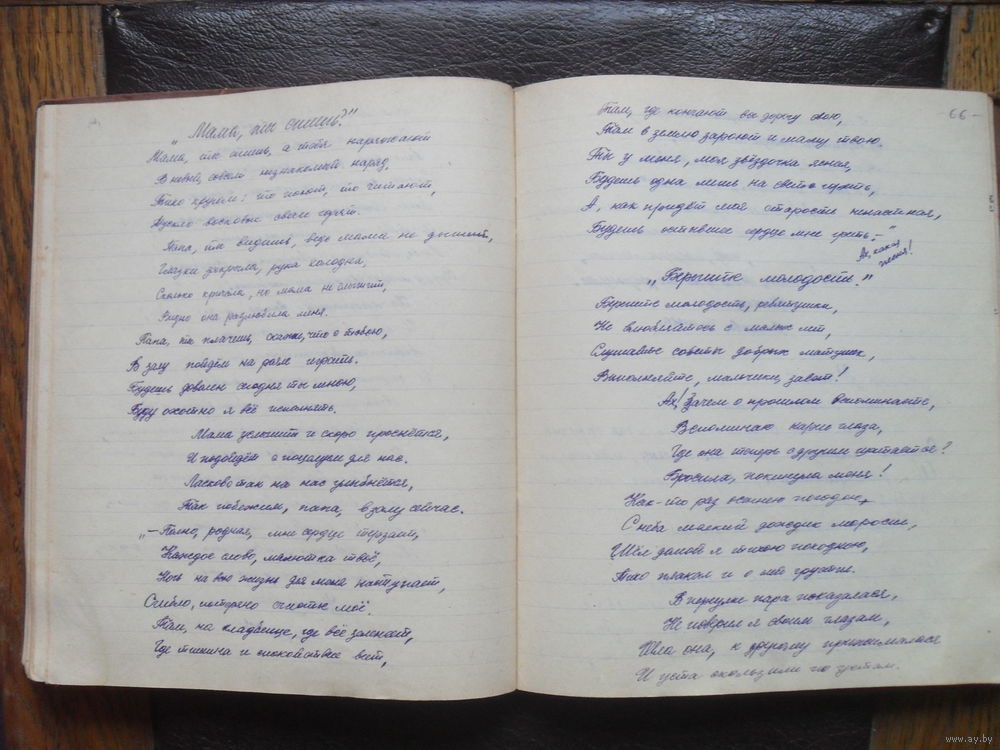 „Мама, ты спишь?"
Мама, ты спишь, а тебя наряжают
В новый, совсем незнакомый наряд,
Тихо кругом: то поют, то читают,
восковые свечи горят.
Папа, ты видишь, ведь мама не дышит,
Глазки закрыла, рука холодна,
Сколько кричала, но мама не слышит,
Видно она разлюбила меня.
Папа, ты плачешь, скажи, что с тобою,
В залу пойдём на рояле играть.
Будешь доволен сегодня ты мною,
Буду охотно я всё исполнять.
Мама услышит и скоро проснётся,
И подойдёт с поцелуем для нас.
Ласково так на нас улыбнётся,
Так побежим, папа, в залу сейчас.
„— Полно, родная, мне сердце терзает,
Каждое слово, малютка твоё,
Ночь на всю жизнь для меня наступает,
Сгибло, потеряно счастье моё.
Там, на кладбище, где всё зеленеет,
Где тишина и спокойствие веет,
- 66 -
Там, где кончают все дорогу свою,
Там в землю зароют и маму твою.
Ты у меня, моя звёздочка ясная,
Будешь одна лишь на свете гореть,
А, как придёт моя старость ненастная,
Будешь остывшее сердце мне греть.—"
Ах, какая
песня!
„Берегите молодость."
Берегите молодость, ребятушки,
Не влюбляйтесь с малых лет,
Слушайте советы добрых матушек,
Выполняйте, мальчики, завет!
Ах! Зачем о прошлом вспоминаете,
Вспоминаю карие глаза,
Где она теперь с другим встречается?
Бросила, покинула меня!
Как-то раз осеннею погодою
С неба мелкий дождик моросил,
Шёл домой я тихою походкою,
Тихо плакал и о ней грустил.
В переулке пара показалася,
Не поверил я своим глазам,
Шла она, к другому прижималася
И уста скользили по устам.
www.ay.by